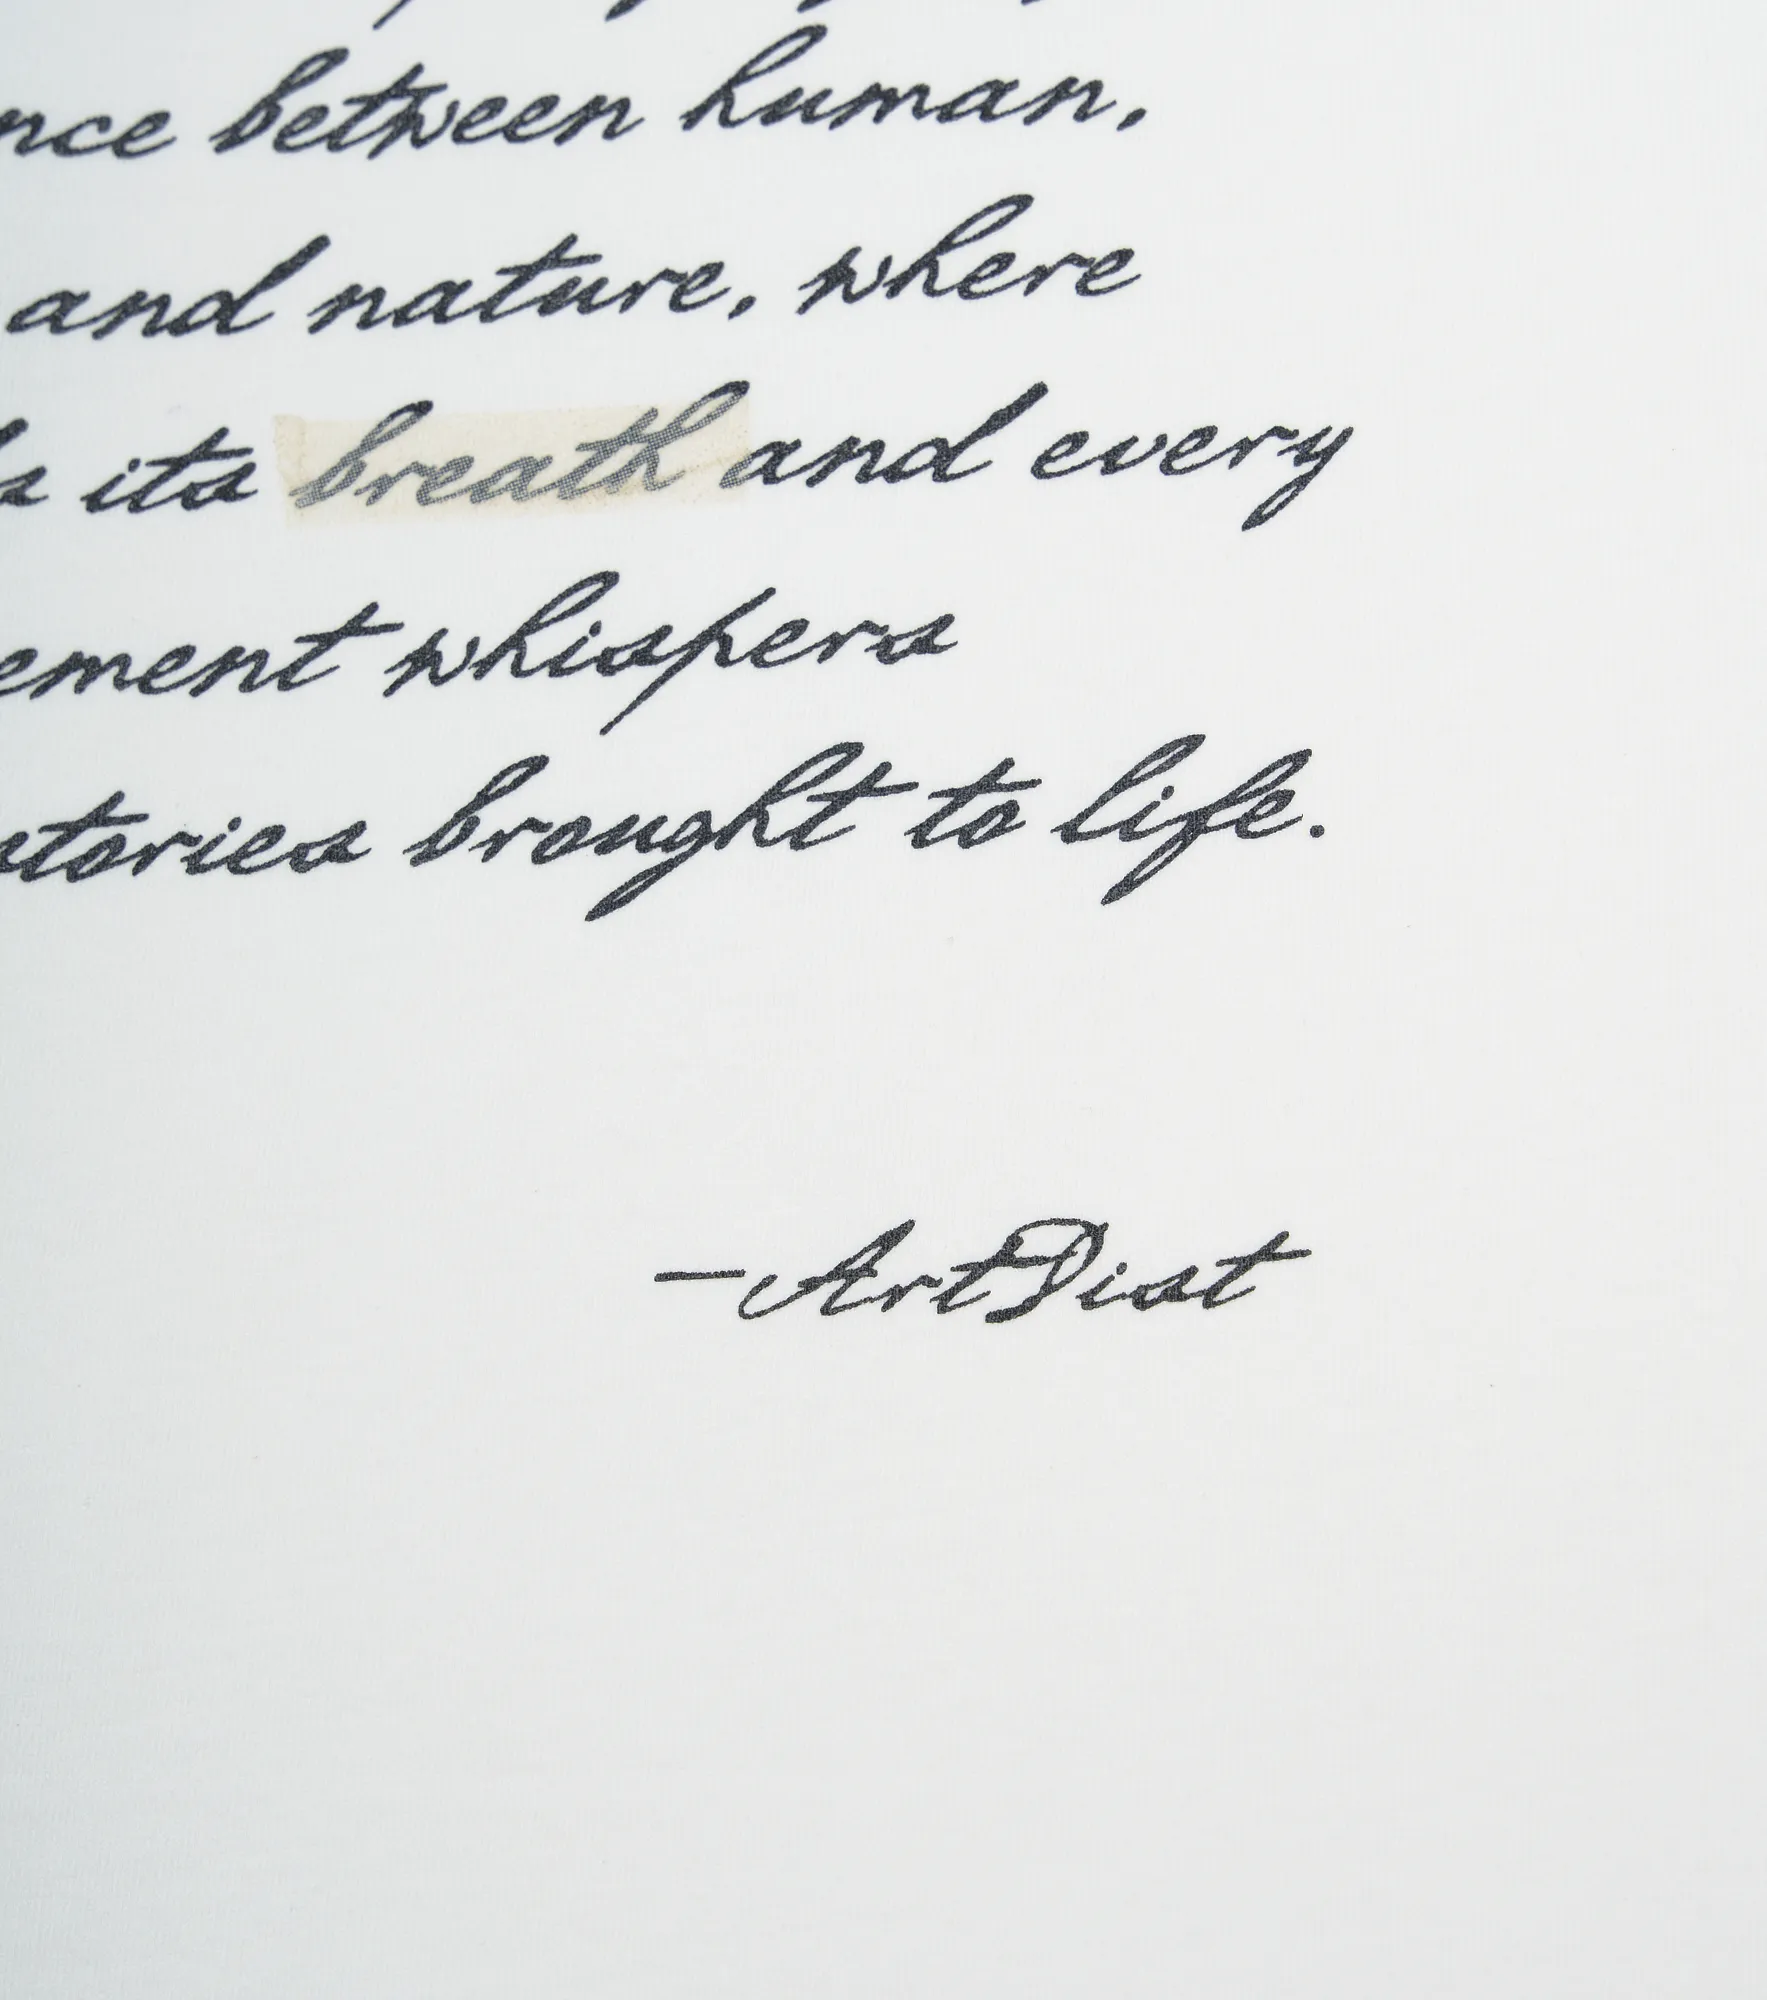 nce between human,
and nature, where
s its breath and every
ement whispers
stories brought to life.
—ArtDist